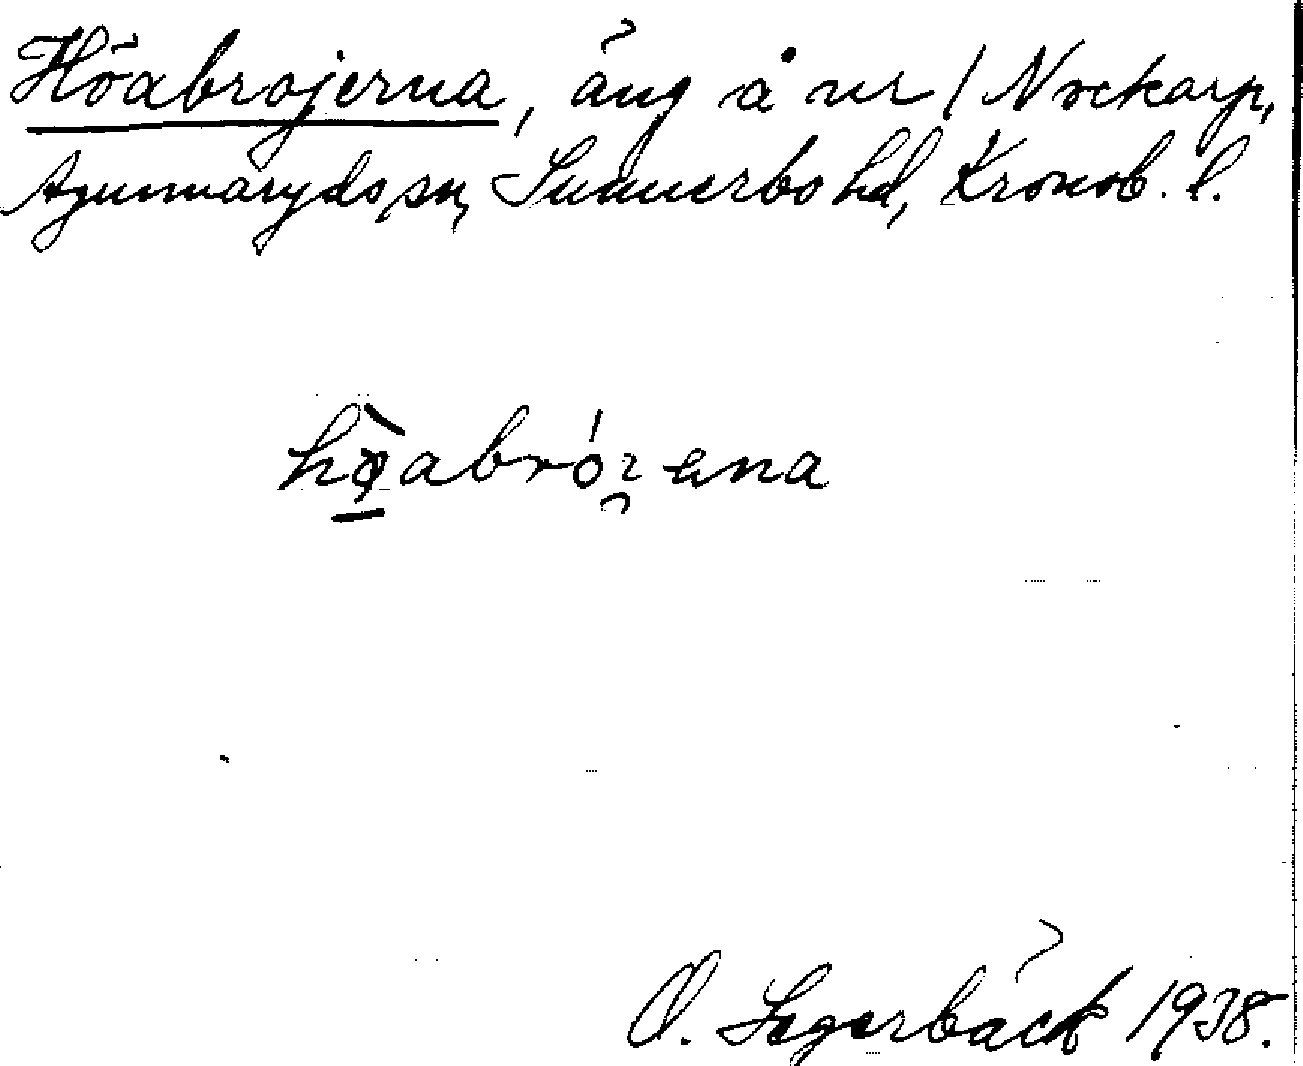 Höabrojerna, äng å nr 1 Nockarp,
Agunnaryds sn, Sunnerbo hd, Kronob. l.
hø̀abróꝛ̯ena
O. Segerbäck 1938.